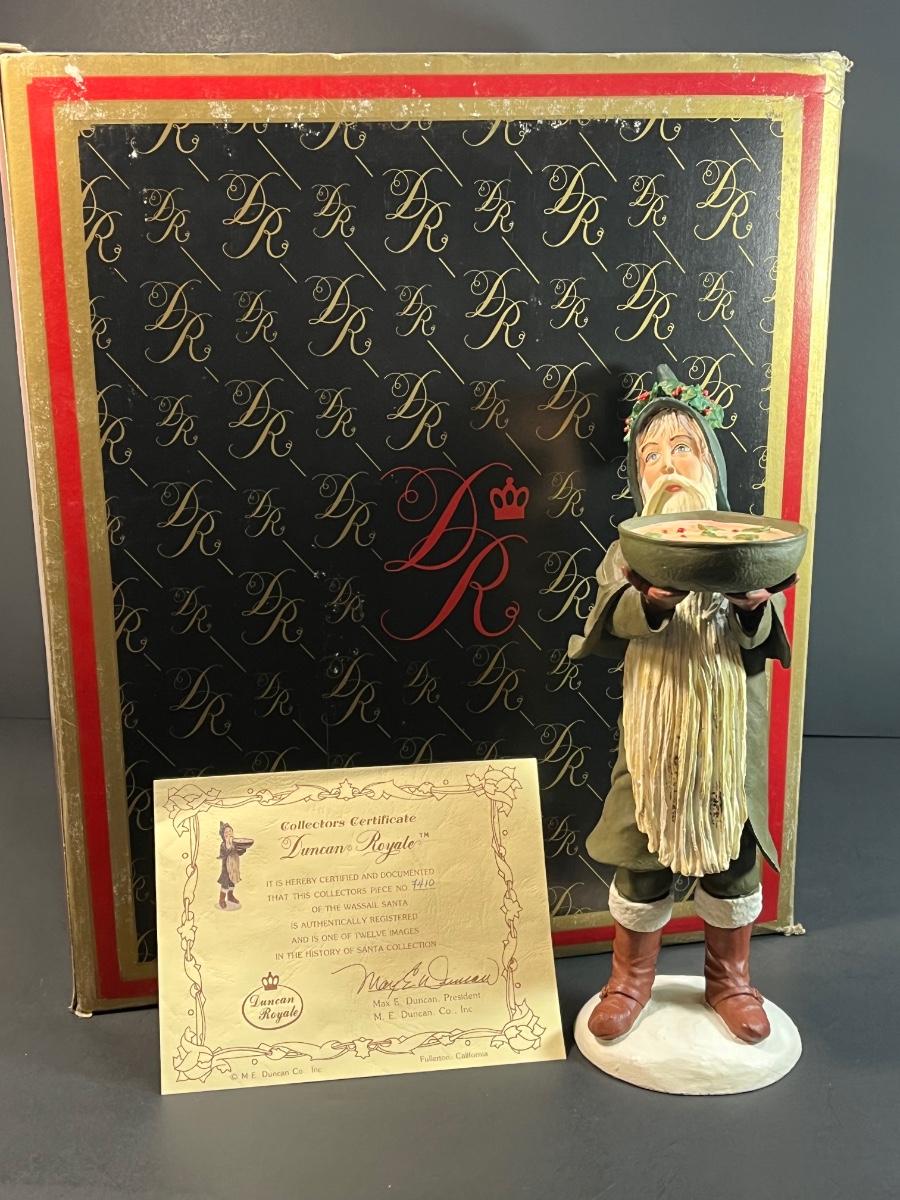 DR
Collectors Certificate
Duncan Royale™
IT IS HEREBY CERTIFIED AND DOCUMENTED
THAT THIS COLLECTORS PIECE NO. 7410
OF THE WASSAIL SANTA
IS AUTHENTICALLY REGISTERED
AND IS ONE OF TWELVE IMAGES
IN THE HISTORY OF SANTA COLLECTION
Max E. Duncan
Duncan
Royale
Max E. Duncan, President
M. E. Duncan, Co., Inc
Fullerton, California
© M.E. Duncan Co. Inc.